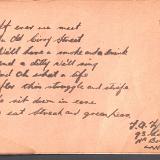 If ever we meet
In Old Civvy Street
We'll have a smoke and a drink
and a ditty we'll sing
And Oh what a life
After this struggle and strife
To sit down in ease
To eat Steak and green peas